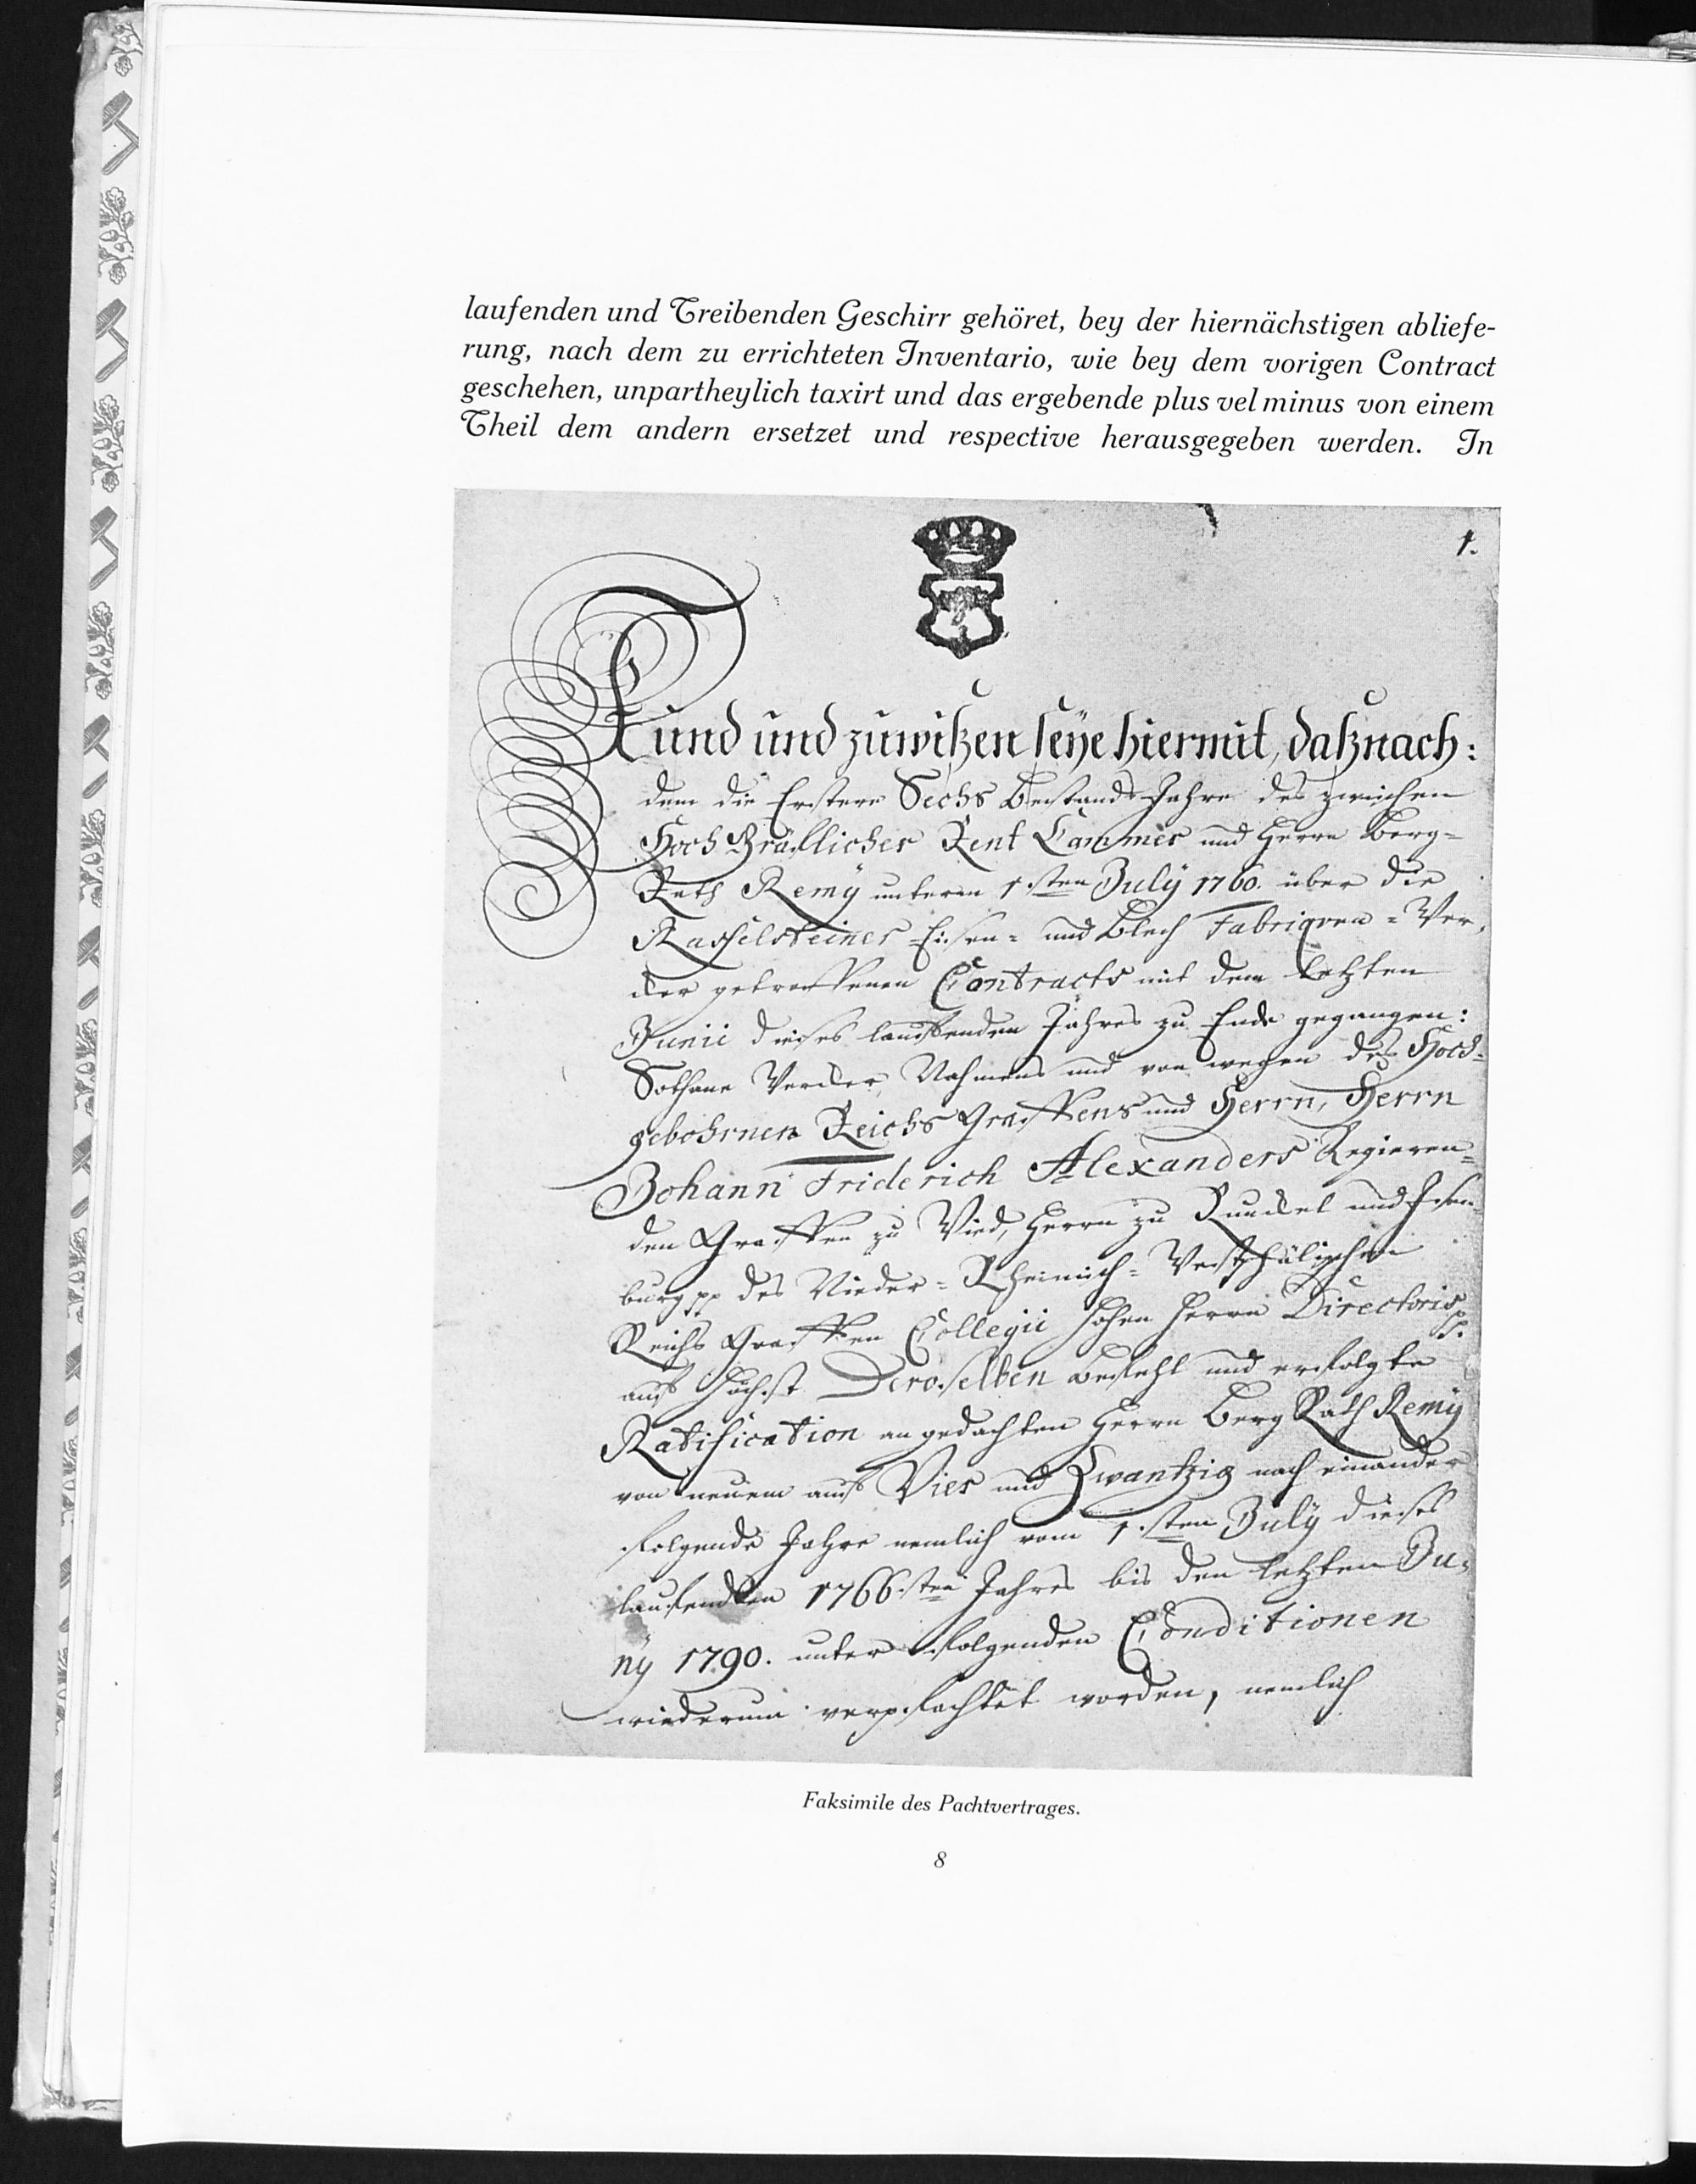 laufenden und Treibenden Geschirr gehöret, bey der hiernächstigen abliefe-
rung, nach dem zu errichteten Inventario, wie bey dem vorigen Contract
geschehen, unpartheylich taxirt und das ergebende plus vel minus von einem
Theil dem andern ersetzet und respective herausgegeben werden. In
1.
Kund und zuwißen seye hiermit, daß nach:
dem die Erstere Sechs Bestands Jahre des zwischen
Hoch Gräfflicher Rent Cammer und Herrn Berg=
Rath Remy unterm 1.sten July 1760. über die
Rasselsteiner Eisen= und Blech Fabriquen=
getroffenen Contracts mit dem letzten
Junii dieses lauffenden Jahres zu Ende gegangen:
Sothane Nahmens und von wegen des Hoch=
gebohrnen Reichs Graffens und Herrn, Herrn
Johann Friderich Alexanders Regieren=
den Graffen zu Wied, Herrn zu Runckel und Isen
burg pp des Nieder= Rheinisch= Westphälischen
Reichs Graffen Collegii hohen Herrn Directoris pp.
auf Höchst Deroselben Befehl und erfolgte
Ratification an gedachten Herrn Berg Rath Remy
von neuem auf Vier und Zwantzig nach einander
folgende Jahre nemlich vom 1.sten July dieses
laufenden 1766.sten Jahres bis den letzten Ju=
ny 1790. unter folgenden Conditionen
wiederum verpfachtet worden, nemlich
Faksimile des Pachtvertrages.
8